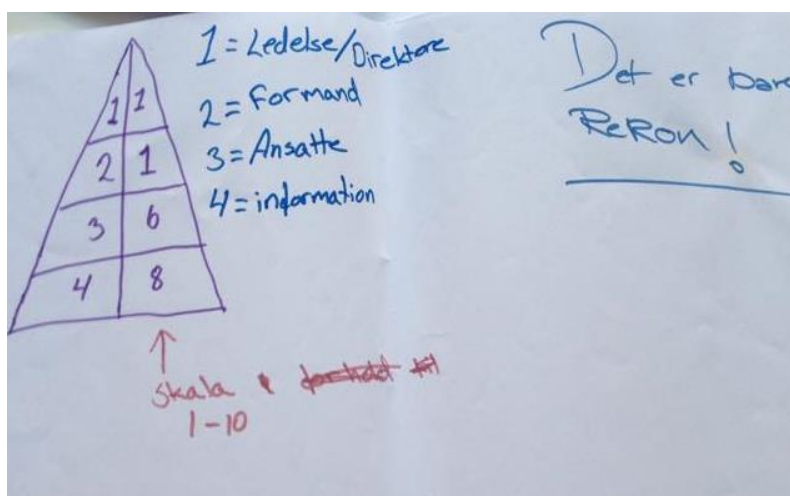 1 1
2 1
3 6
4 8
1 = Ledelse/Direktøre
2 = Formand
3 = Ansatte
4 = information
Det er bare
ReRon!
skala
1-10